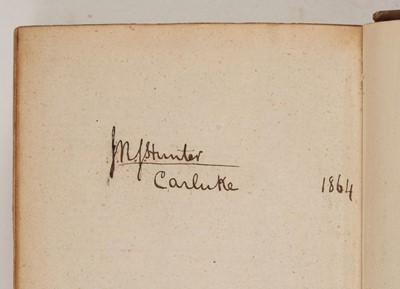 J R S Hunter
Carluke 1864